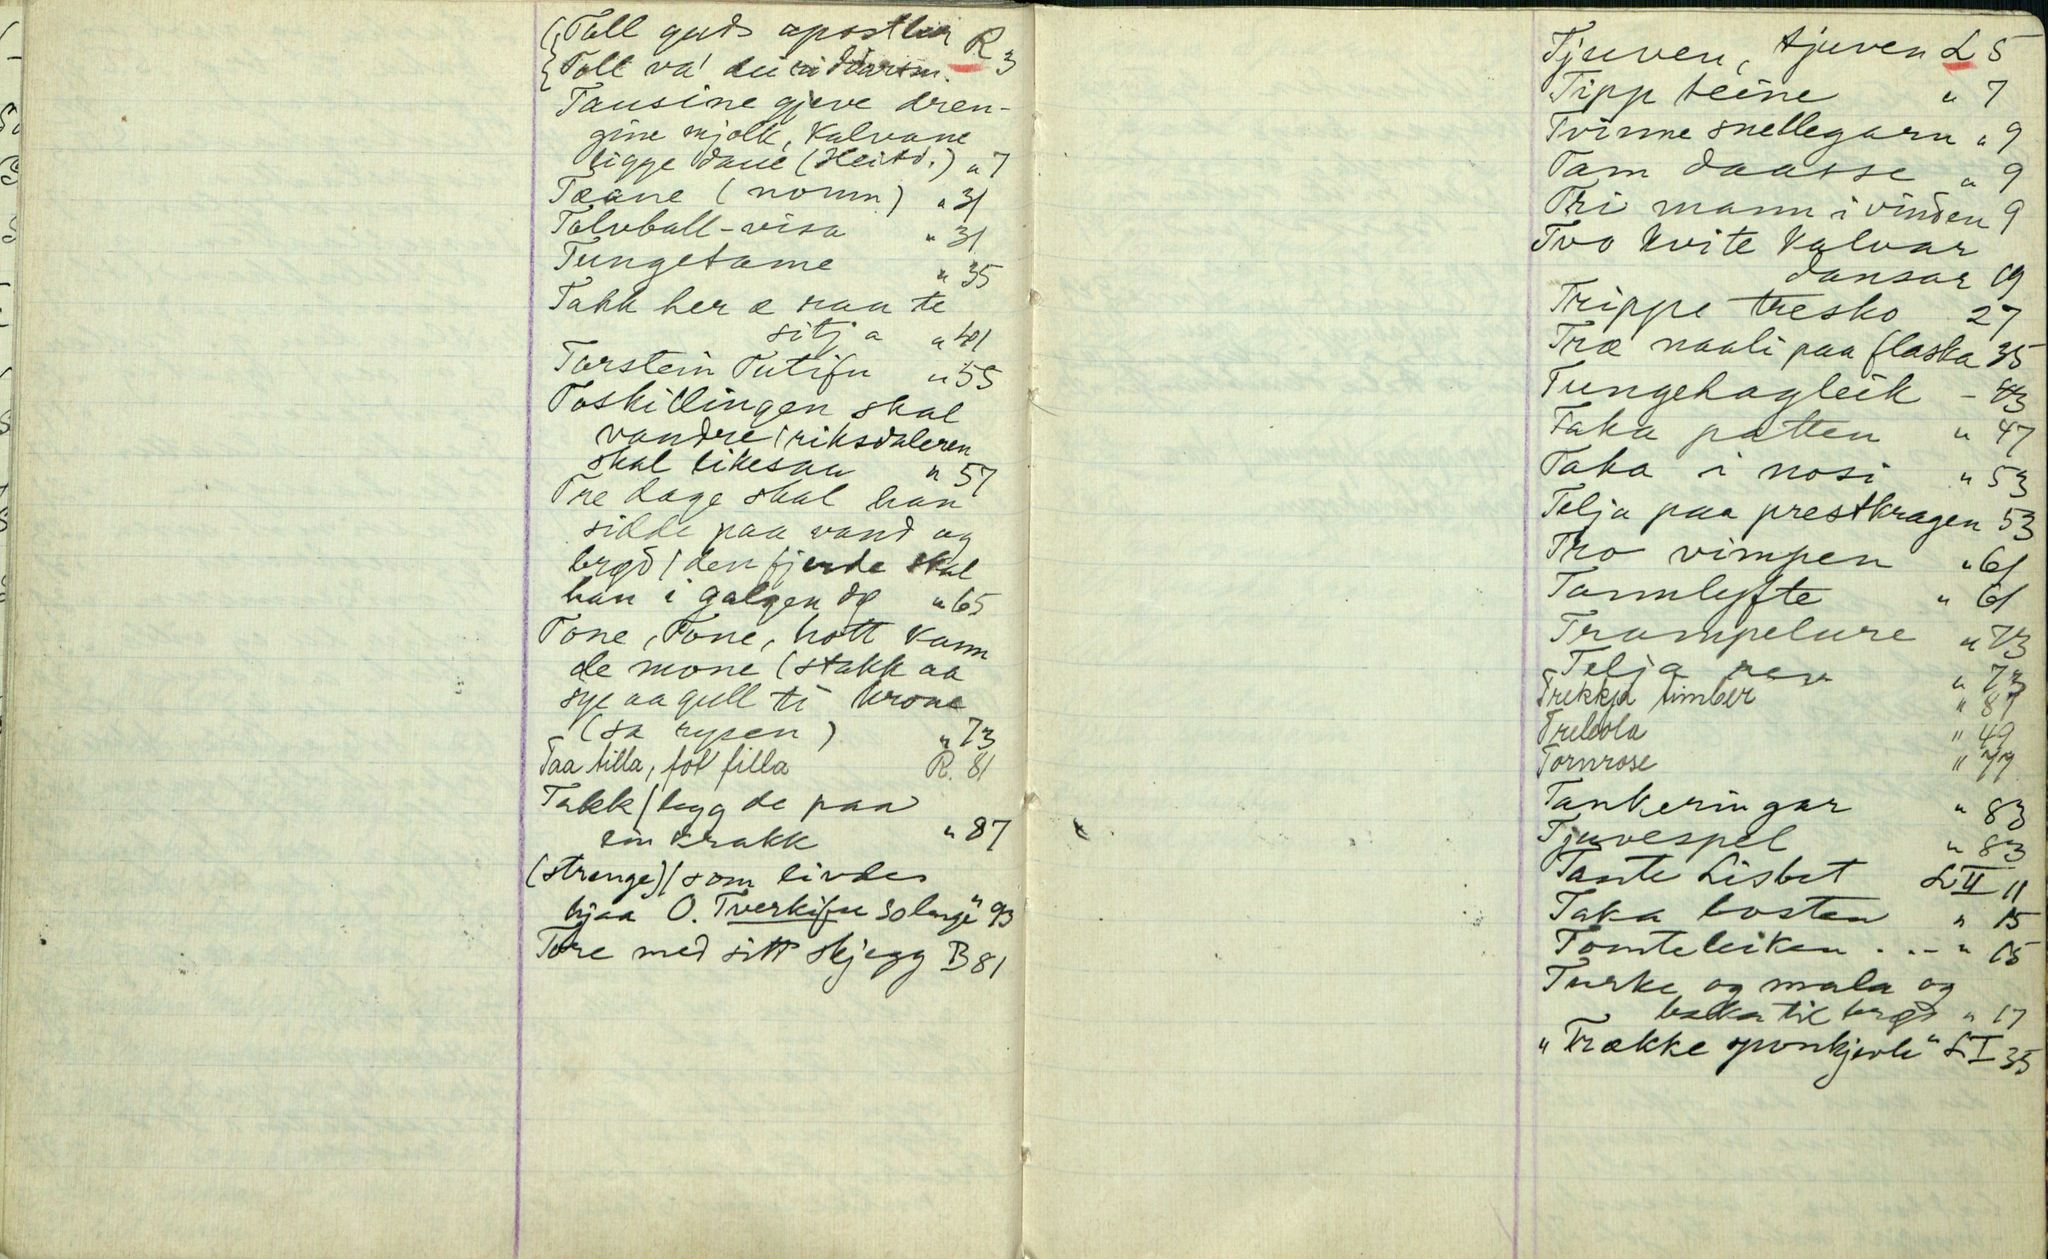 Toll guds apostlar R 3
Toll va' dei riddarsm.
Tausine gjeve dren-
gine mjolk, Kalvane
ligge daue (Heitd.) " 7
Tæane (nomn) " 31
Tolvball-visa " 31
Tungetame " 35
Takk her æ raa te
sitja " 41
Torstein Tutifu " 55
Toskillingen skal
vandre / riksdaleren
skal likesaa " 57
Tre dage skal han
sidde paa vand og
brød / den fjerde skal
han i galgen dø " 65
Tone, Tone, hott kann
de mone (stakk aa
sye aa gull ti krone
(sa rypen) " 73
Taa tilla, fot filla R. 81
Takk / legg de paa
ein krakk " 87
(strenge) / som livdes
hjaa O. Tverkifu Solarge" 93
Tore med sitt skjegg B 81
Tjuven, tjuven L 5
Tipp teine " 7
Tvinne snellegarn " 9
Tam daasse " 9
Tri mann i vinden 9
Tvo kvite Kalvar
dansar 19
Trippe tresko 27
Træ naali paa flaska 35
Tungehagleik - 43
Taka patten " 47
Taka i nosi " 53
Telja paa prestkragen 53
Tro vimpen " 61
Tarmlyfte " 61
Trampelure " 73
Telja " 73
Trekkja timber " 87
Trebola " 49
Tornrose " 77
Tankeringar " 83
Tjuvespel " 83
Tante Lisbet L II 11
Taka bosten " 15
Tomteleiken . . - " 15
Turke og mala og
baka til brød " 17
"Trække sponkjerle" L I 35